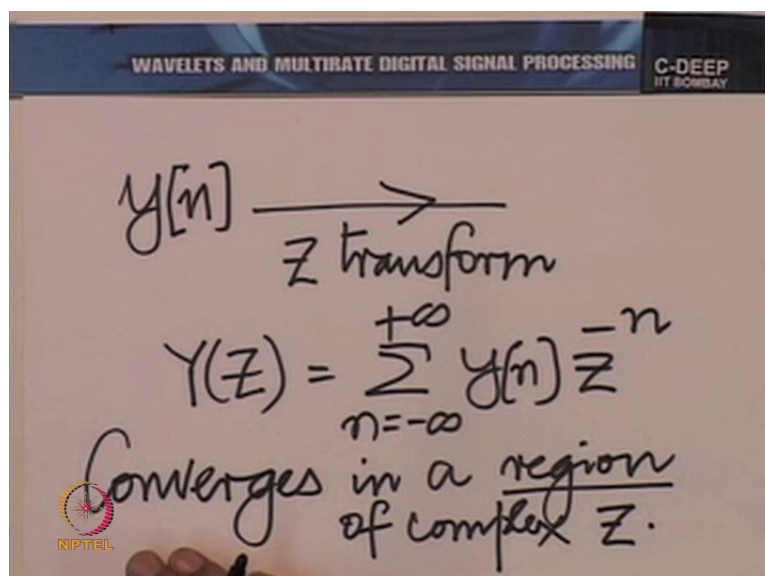 WAVELETS AND MULTIRATE DIGITAL SIGNAL PROCESSING
C-DEEP
IIT BOMBAY
y[n] →
Z transform
Y(Z) = +∞ Σ n=-∞ y[n] Z^-n
Converges in a region
of complex Z.
NPTEL